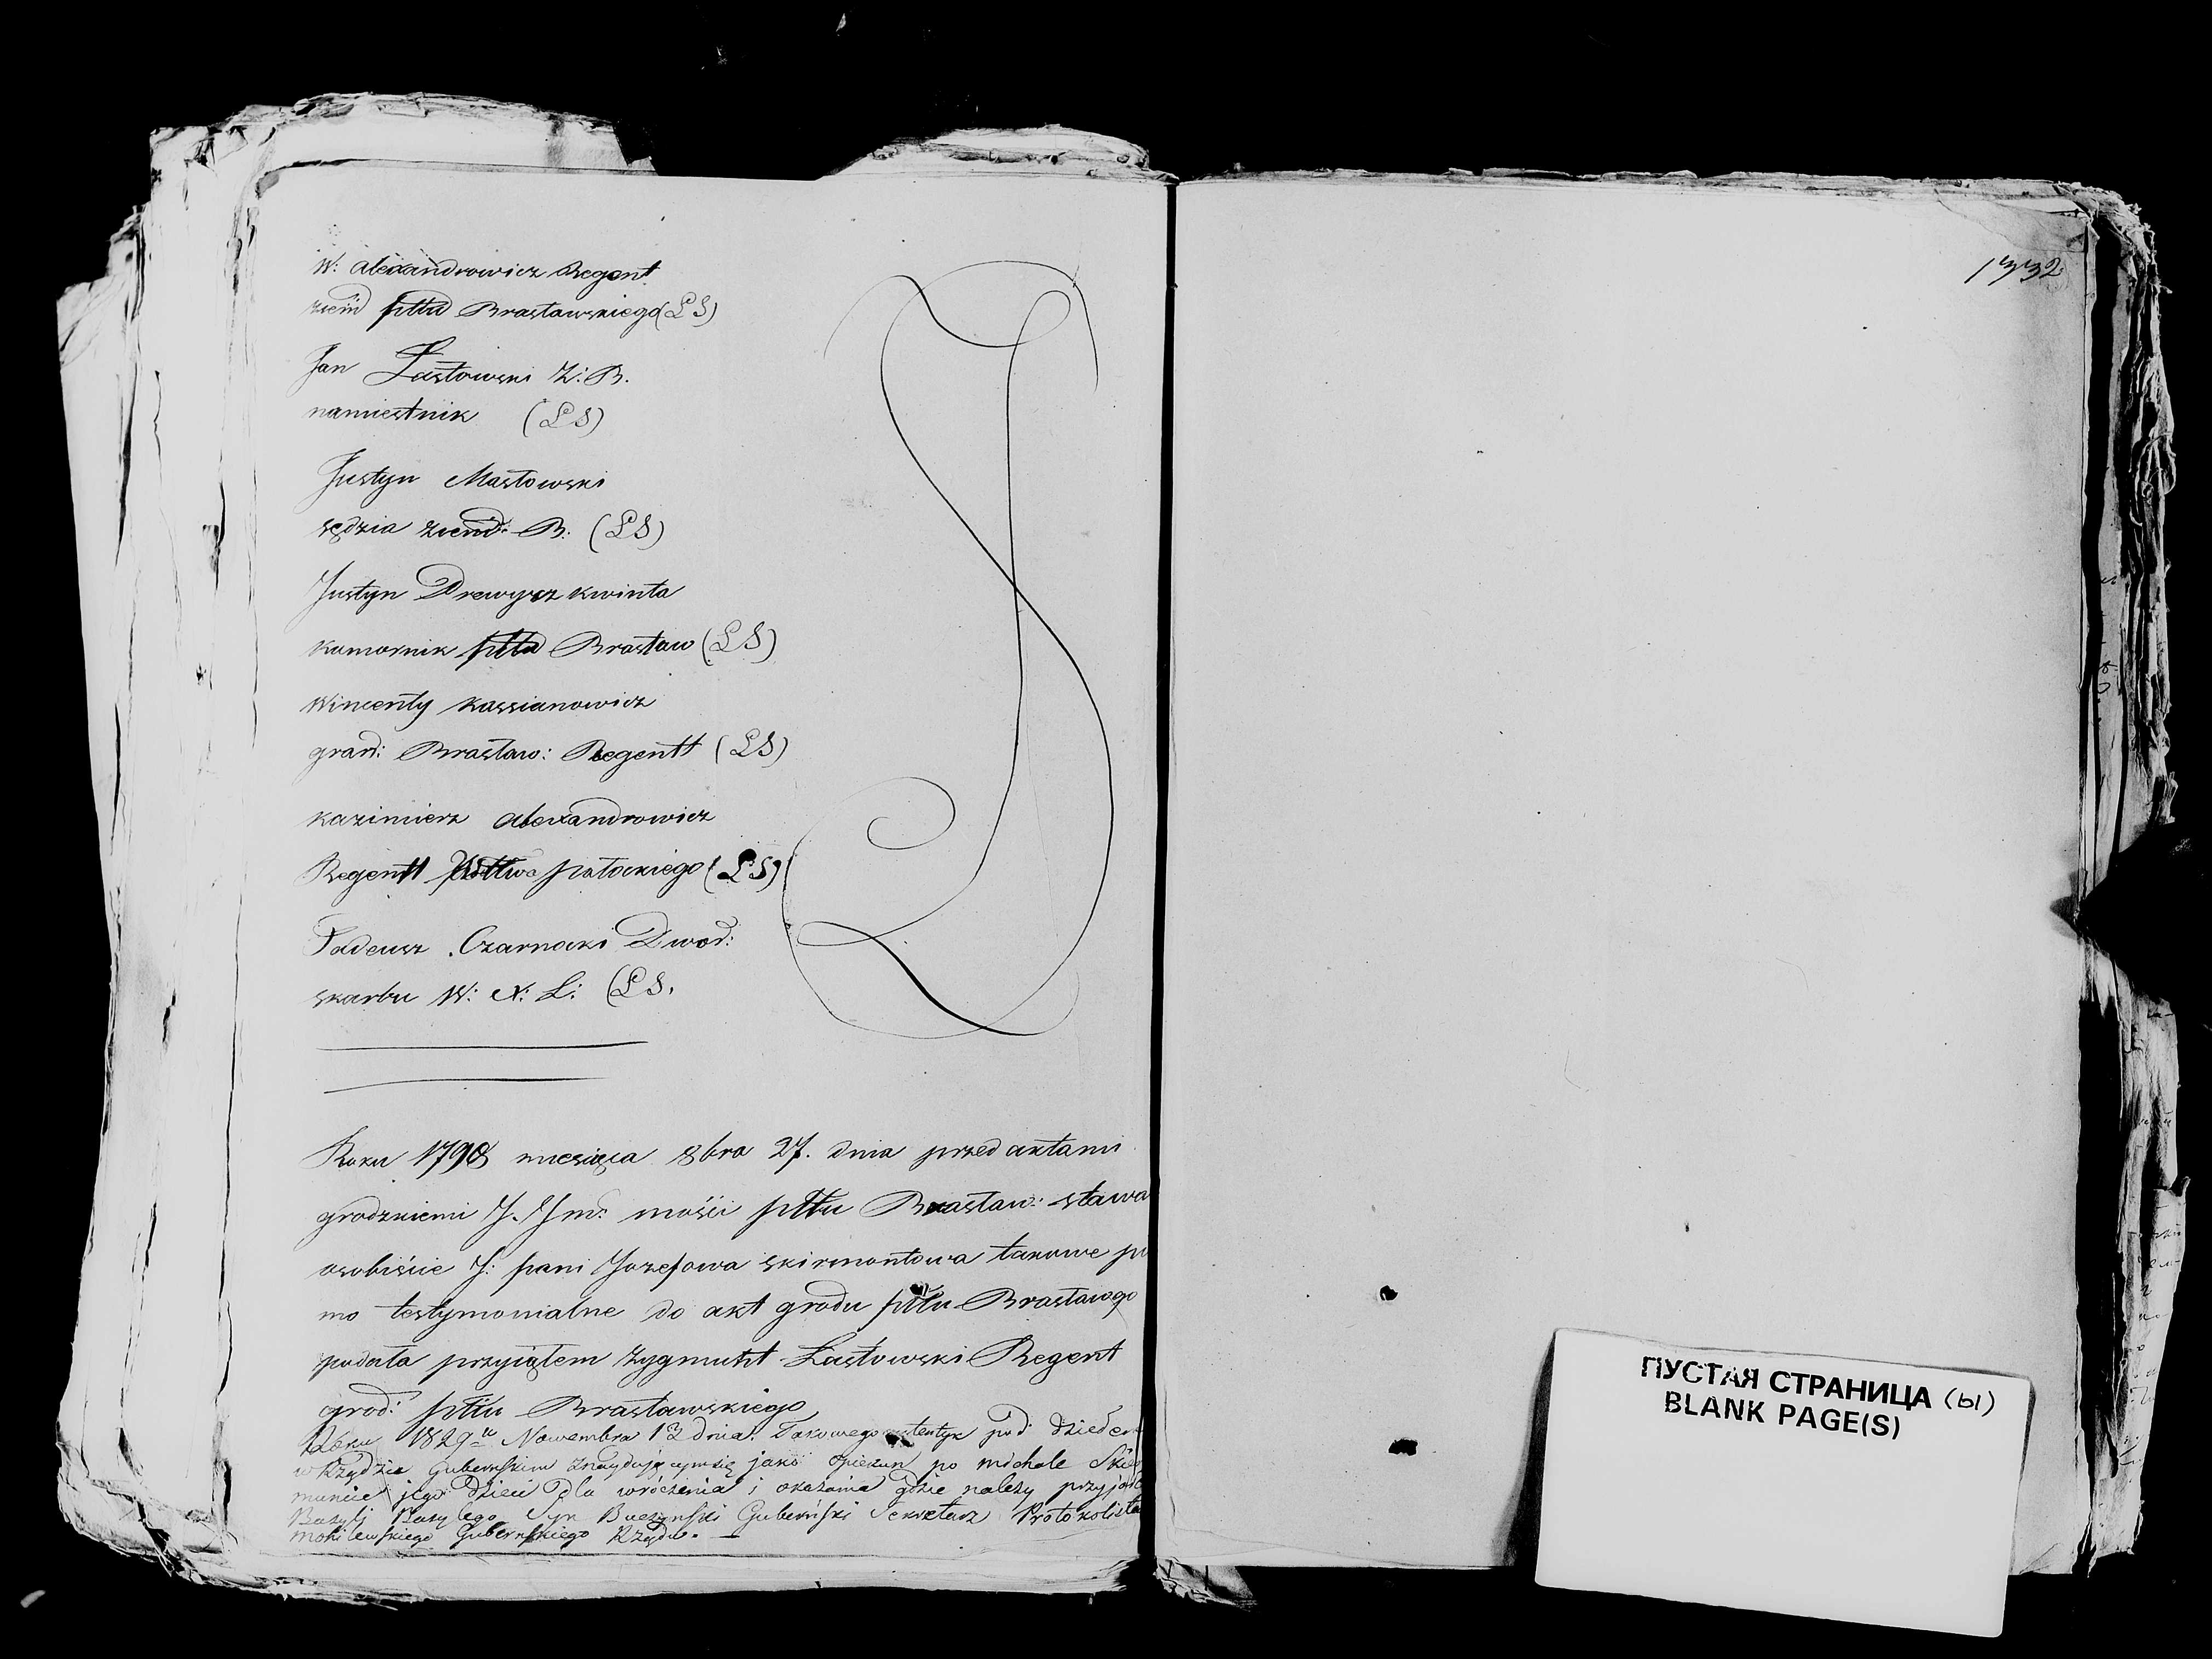 W: Alexandrowicz Regent
ziem pttu Brasławskiego (LS)
Jan Łastowski Z: B.
namiestnik (LS)
Justyn Masłowski
sędzia ziem: B. (LS)
Justyn Drewysz kwinta
komornik pttu Brasław (LS)
Wincenty Kossianowicz
grod: Brasław: Regentt (LS)
Kazimierz Alexandrowicz
Regentt połockiego (LS)
Tadeusz Czarnocki Dwor:
skarbu W: X: L: (LS.
Roku 1798 miesiąca 8bra 27. dnia przed aktami
grodzkiemi J. Jm: mości pttu Brasław: stawa
osobiście J: pani Jozefowa skirmontowa takowe
mo testymonialne do akt grodu pttu Brasławgo
podała przyiąłem Zygmunt Łastowski Regent
grod: pttu Brasławskiego
Roku 1829 Nowembra 13 dnia. Takowego autentyk pod
w Rządzie Gubernskim znaydującym się jako opiekun po michale
municie jego dzieci dla wrócenia i okazania gdzie należy
Bazyli Bazylego Syn Buczynski Guberński Sekretarz Protokolista
mohilewskiego Gubernskiego Rządu. —
1332
ПУСТАЯ СТРАНИЦА (Ы)
BLANK PAGE(S)